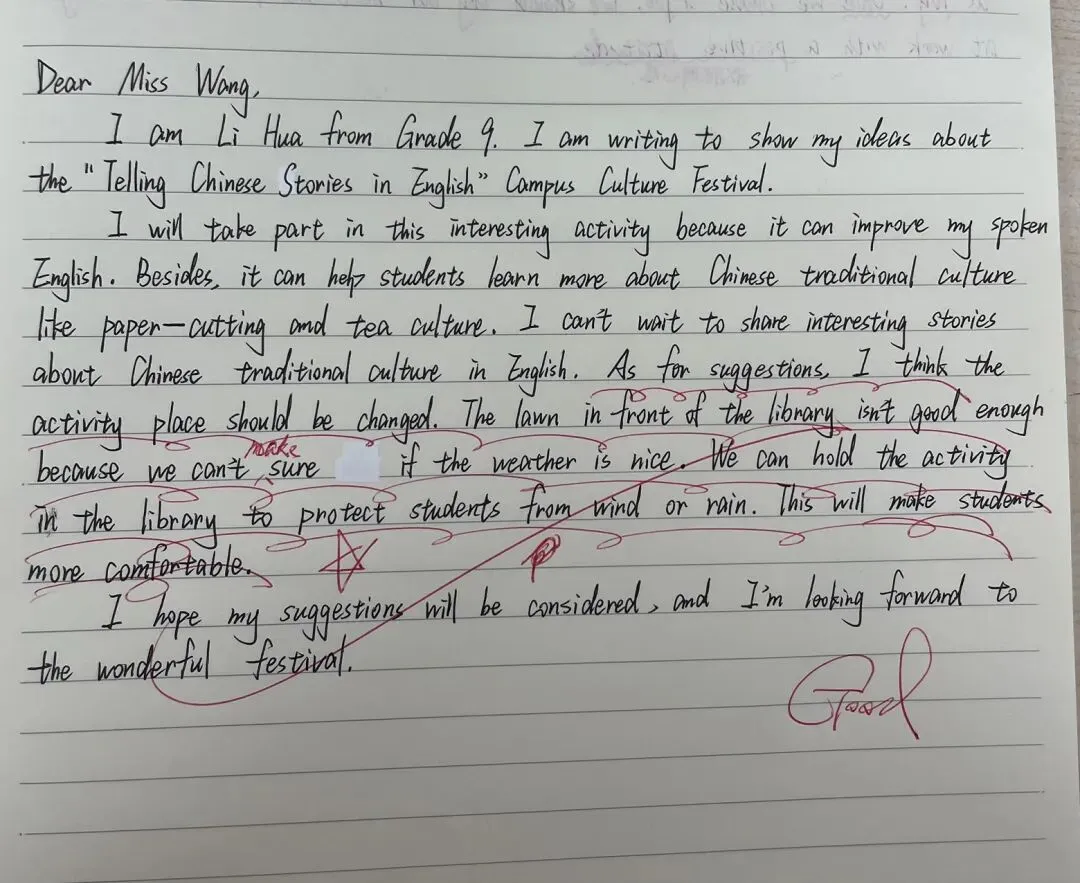 Dear Miss Wang,
I am Li Hua from Grade 9. I am writing to show my ideas about
the "Telling Chinese Stories in English" Campus Culture Festival.
I will take part in this interesting activity because it can improve my spoken
English. Besides, it can help students learn more about Chinese traditional culture
like paper-cutting and tea culture. I can't wait to share interesting stories
about Chinese traditional culture in English. As for suggestions, I think the
activity place should be changed. The lawn in front of the library isn't good enough
make
because we can't sure if the weather is nice. We can hold the activity
in the library to protect students from wind or rain. This will make students
more comfortable.
I hope my suggestions will be considered, and I'm looking forward to
the wonderful festival.
Good